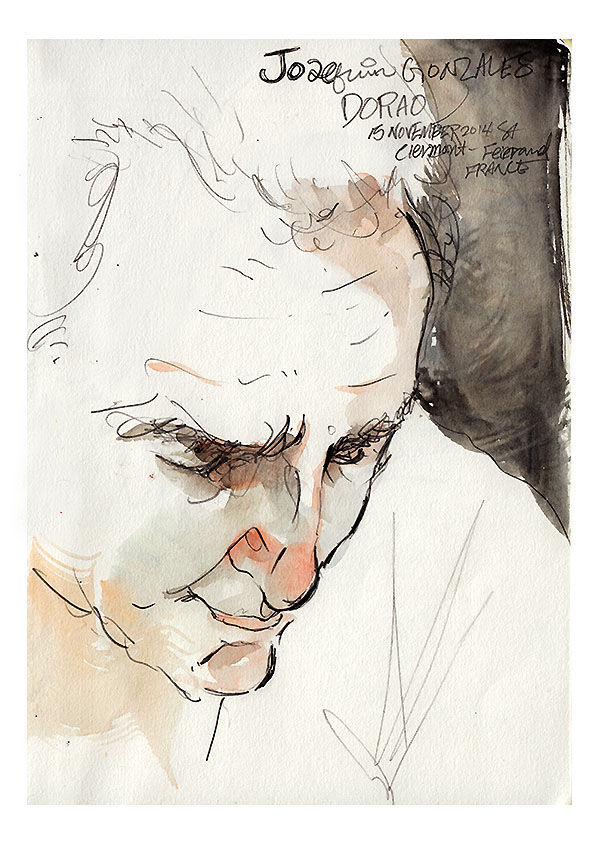 Joaquin GONZALES
DORAO
15 NOVEMBER 2014
Clermont-Ferrand
FRANCE